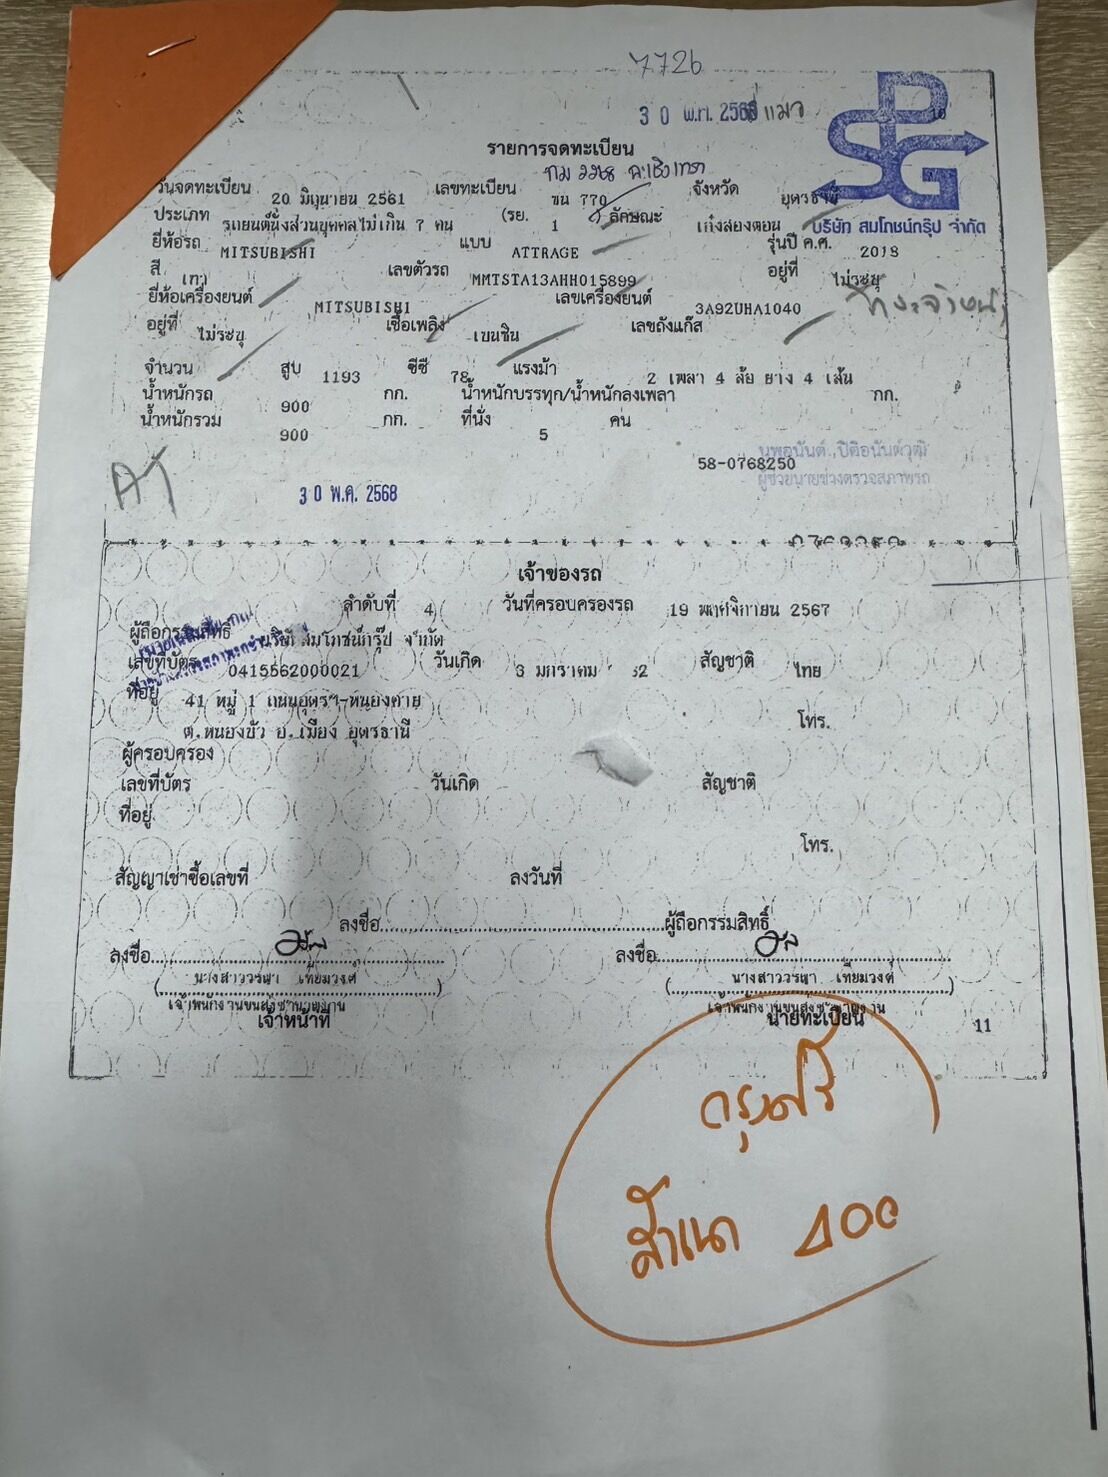 7726
30 พ.ค. 2568 แมว
10
รายการจดทะเบียน
SPG
วันจดทะเบียน 20 มิถุนายน 2561 เลขทะเบียน ขน 770 จังหวัด อุดรธานี
ประเภท รถยนต์นั่งส่วนบุคคลไม่เกิน 7 คน (รย. 1 ) ลักษณะ เก๋งสองตอน
บริษัท สมโภชน์กรุ๊ป จำกัด
ยี่ห้อรถ MITSUBISHI แบบ ATTRAGE รุ่นปี ค.ศ. 2018
สี เทา เลขตัวรถ MMTSTA13AHH015899 อยู่ที่ ไม่ระบุ
ยี่ห้อเครื่องยนต์ MITSUBISHI เลขเครื่องยนต์ 3A92UHA1040
อยู่ที่ ไม่ระบุ เชื้อเพลิง เบนซิน เลขถังแก๊ส
จำนวน สูบ 1193 ซีซี 78 แรงม้า 2 เพลา 4 ล้อ ยาง 4 เส้น
น้ำหนักรถ 900 กก. น้ำหนักบรรทุก/น้ำหนักลงเพลา กก.
น้ำหนักรวม 900 กก. ที่นั่ง 5 คน
58-0768250
ผู้ช่วยนายช่างตรวจสภาพรถ
AT
30 พ.ค. 2568
เจ้าของรถ
ลำดับที่ 4 วันที่ครอบครองรถ 19 พฤศจิกายน 2567
ผู้ถือกรรมสิทธิ์ บริษัท สมโภชน์กรุ๊ป จำกัด
เลขที่บัตร 0415562000021 วันเกิด 3 มกราคม 62 สัญชาติ ไทย
ที่อยู่ 41 หมู่ 1 ถนนอุดรฯ-หนองคาย
โทร.
ต.หนองบัว อ.เมือง อุดรธานี
ผู้ครอบครอง
เลขที่บัตร วันเกิด สัญชาติ
ที่อยู่
โทร.
สัญญาเช่าซื้อเลขที่ ลงวันที่
ลงชื่อ ผู้ถือกรรมสิทธิ์
ลงชื่อ ลงชื่อ
(นางสาววรษา เทียมวงศ์) (นางสาววรษา เทียมวงศ์)
เจ้าพนักงานขนส่งชำนาญงาน เจ้าพนักงานขนส่งชำนาญงาน
เจ้าหน้าที่ นายทะเบียน 11
กรุงศรี
สำเนา 400